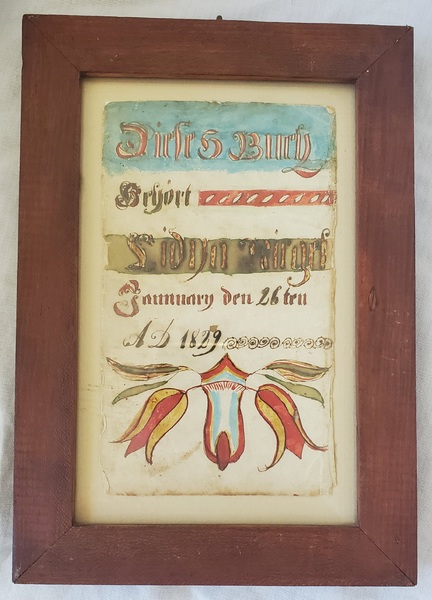 Dieses Buch
Gehört
Lidya
Jannuary den 26 ten
AD 1829